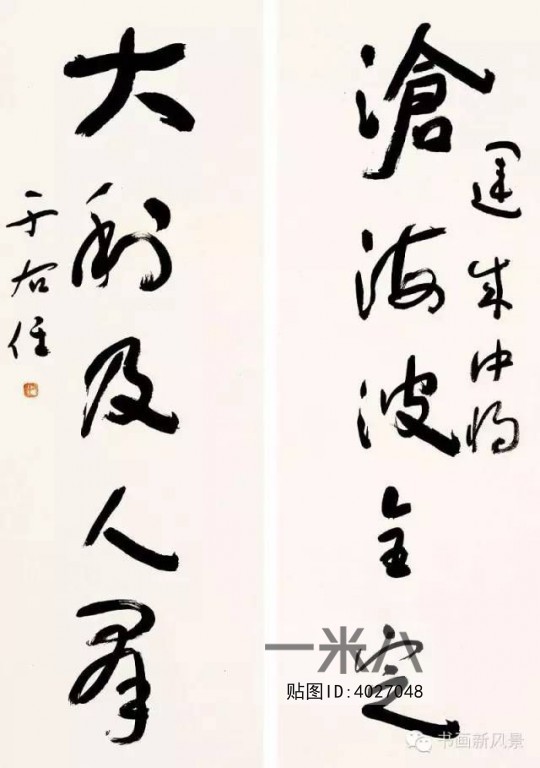 滄海波全定
成中将
大利及人群
于右任
一米八
贴图ID:4027048
书画新风景